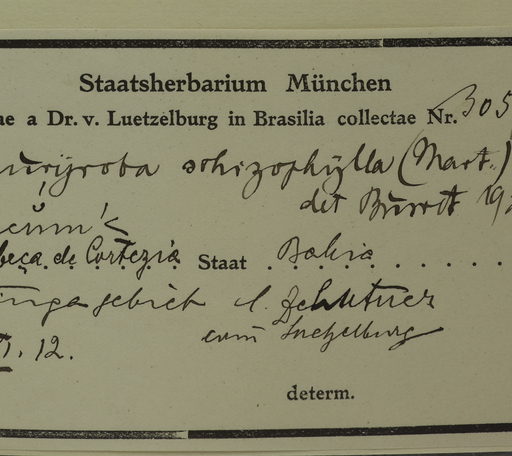 Staatsherbarium München
ae a Dr. v. Luetzelburg in Brasilia collectae Nr. 305
schizophylla (Mart.)
det Burret 19
beça de Cortezia Staat Bahia
inga gebiet l. Zehntner
cum Luetzelburg
. 12.
determ.